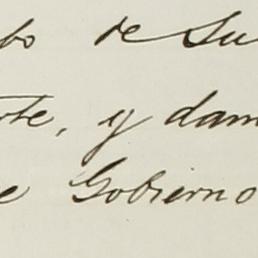 bo de Su
rte, y dam
e Gobierno